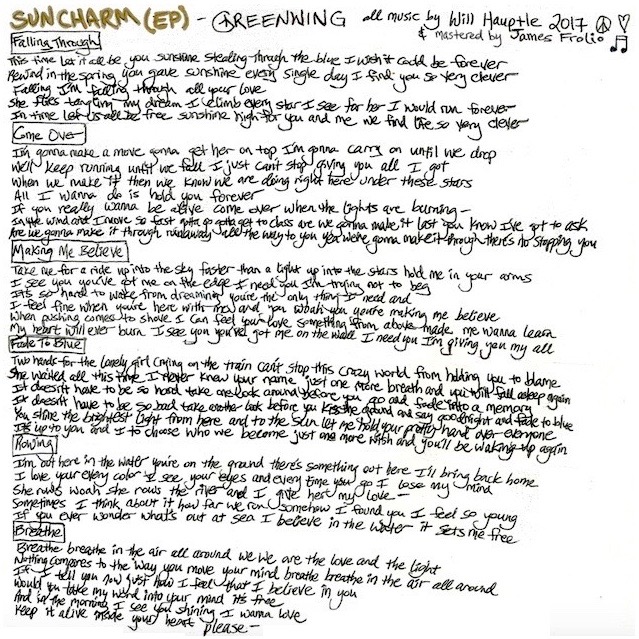 SUN CHARM (EP) - GREENWING all music by Will Hauptle 2017
& mastered by James Frolio
Falling Through
This time let it all be you sunshine stealing through the blue I wish it could be forever
Rewind in the spring you gave sunshine every single day I find you so very clever
Falling I'm falling through all your love
She flies tangling my dream I climb every star I see for her I would run forever
In time let us all be free sunshine high for you and me we find life so very clever
Come Over
I'm gonna make a move gonna get her on top I'm gonna carry on until we drop
We'll keep running until we fall I just can't stop giving you all I got
When we make it then we know we are doing right here under these stars
All I wanna do is hold you forever
If you really wanna be alive come over when the lights are burning-
In the wind and I move so fast gotta get to class are we gonna make it last you know I've got to ask
Are we gonna make it through runaway all the way to you yea we're gonna make it through there's no stopping you
Making Me Believe
Take me for a ride up into the sky faster than a light up into the stars hold me in your arms
I see you you've got me on the edge I need you I'm trying not to beg
It's so hard to wake from dreaming you're the only thing I need and
I feel fine when you're here with me and you woah you you're making me believe
When pushing comes to shove I can feel your love something from above made me wanna learn
My heart will ever burn I see you you've got me on the wall I need you I'm giving you my all
Fade To Blue
Two nerds for the lonely girl crying on the train can't stop this crazy world from holding you to blame
She waited all this time I never knew your name just one more breath and you will fall asleep again
It doesn't have to be so hard take one look around before you go and fade into a memory
It doesn't have to be so bad take another look before you kiss the ground and say goodnight and fade to blue
You shine the brightest light from here and to the sun let me hold your pretty hand over everyone
It's up to you and I to choose who we become just one more wish and you'll be waking up again
Rowing
I'm out here in the water you're on the ground there's something out here I'll bring back home
I love your every color I see your eyes and every time you go I lose my mind
She rows woah she rows the river and I give her my love-
Sometimes I think about it how far we run somehow I found you I feel so young
If you ever wonder what's out at sea I believe in the water it sets me free
Breathe
Breathe breathe in the air all around we we are the love and the light
Nothing compares to the way you move your mind breathe breathe in the air all around
If I tell you now just how I feel that I believe in you
Would you take my word into your mind it's free
And in the morning I see you shining I wanna love
Keep it alive inside your heart please-